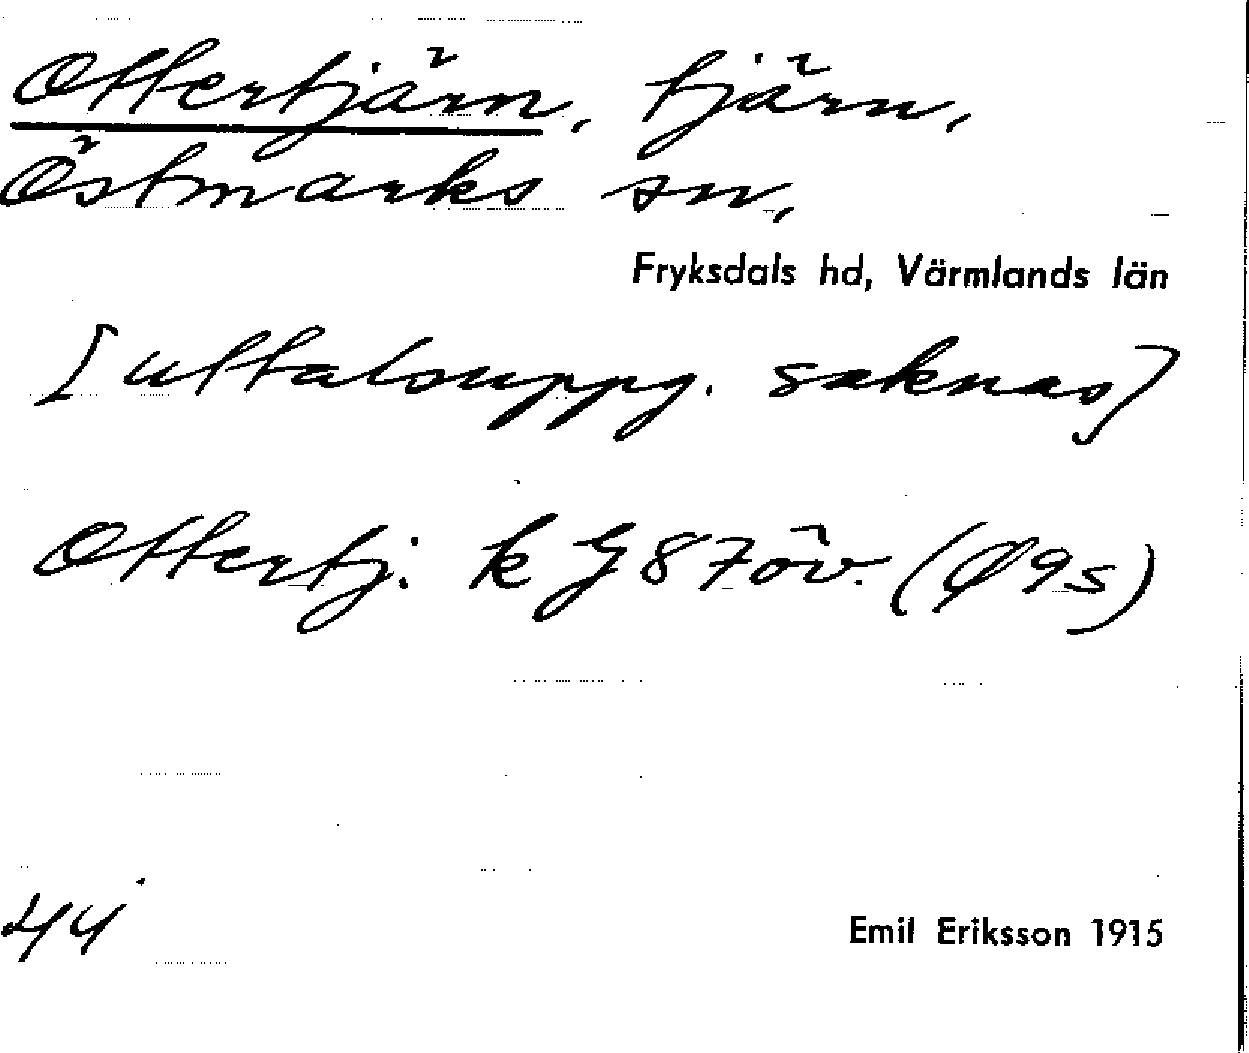 Ottertjärn, tjärn,
Östmarks sn,
Fryksdals hd, Värmlands län
[uttalsuppg. saknas]
Ottertj. k G 87 öv. (Ø 9s)
44
Emil Eriksson 1915